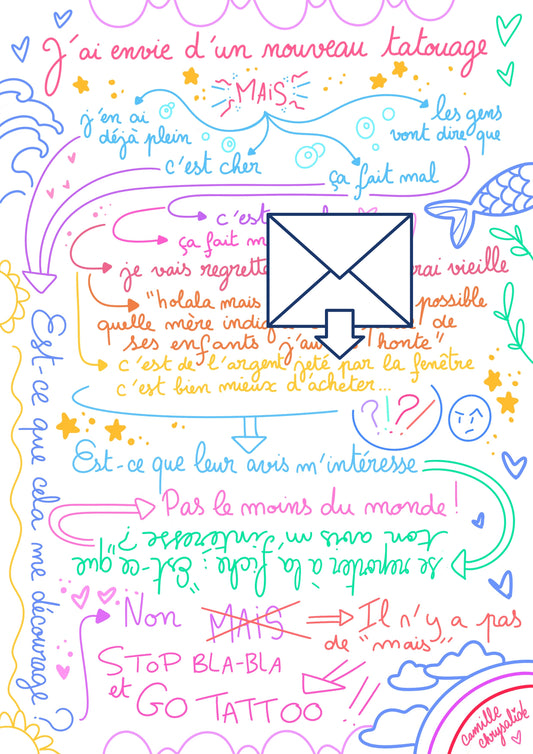 J'ai envie d'un nouveau tatouage
MAIS
j'en ai
déjà plein
c'est cher
ça fait mal
les gens
vont dire que
c'est
ça fait
je vais regrette rai vieille
"holala mais possible
quelle mère indig de
ses enfants j'au honte"
c'est de l'argent jeté par la fenêtre
c'est bien mieux d'acheter...
? ! ? !
Est-ce que leur avis m'intéresse
Pas le moins du monde !
se reporter à la fiche : "Est-ce que
ton avis m'intéresse ?"
Est-ce que cela me décourage ?
Non MAIS
Il n'y a pas
de "mais"
STOP BLA-BLA
et GO TATTOO
camille
chrysalide